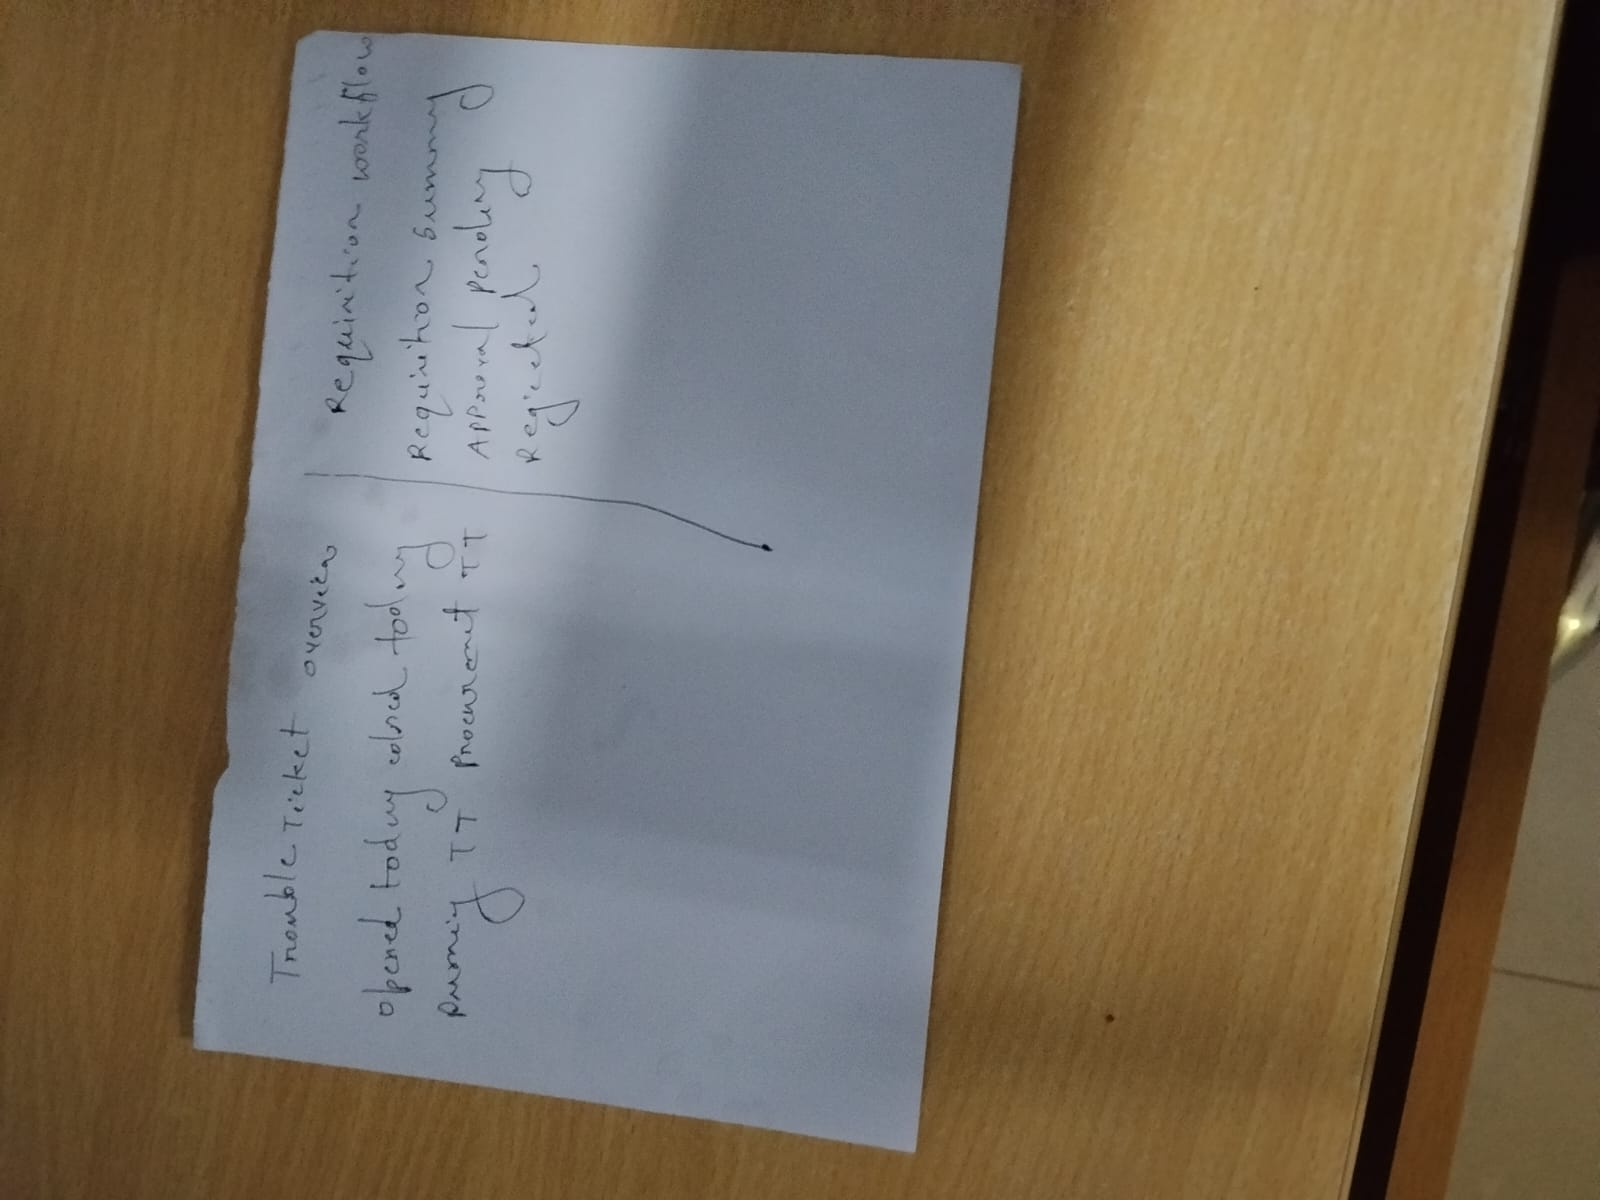 Trouble Ticket overview
opened today colsed today
Runnig TT Procurement TT
Requisition workflow
Requisition summary
Approval Pending
Regicted